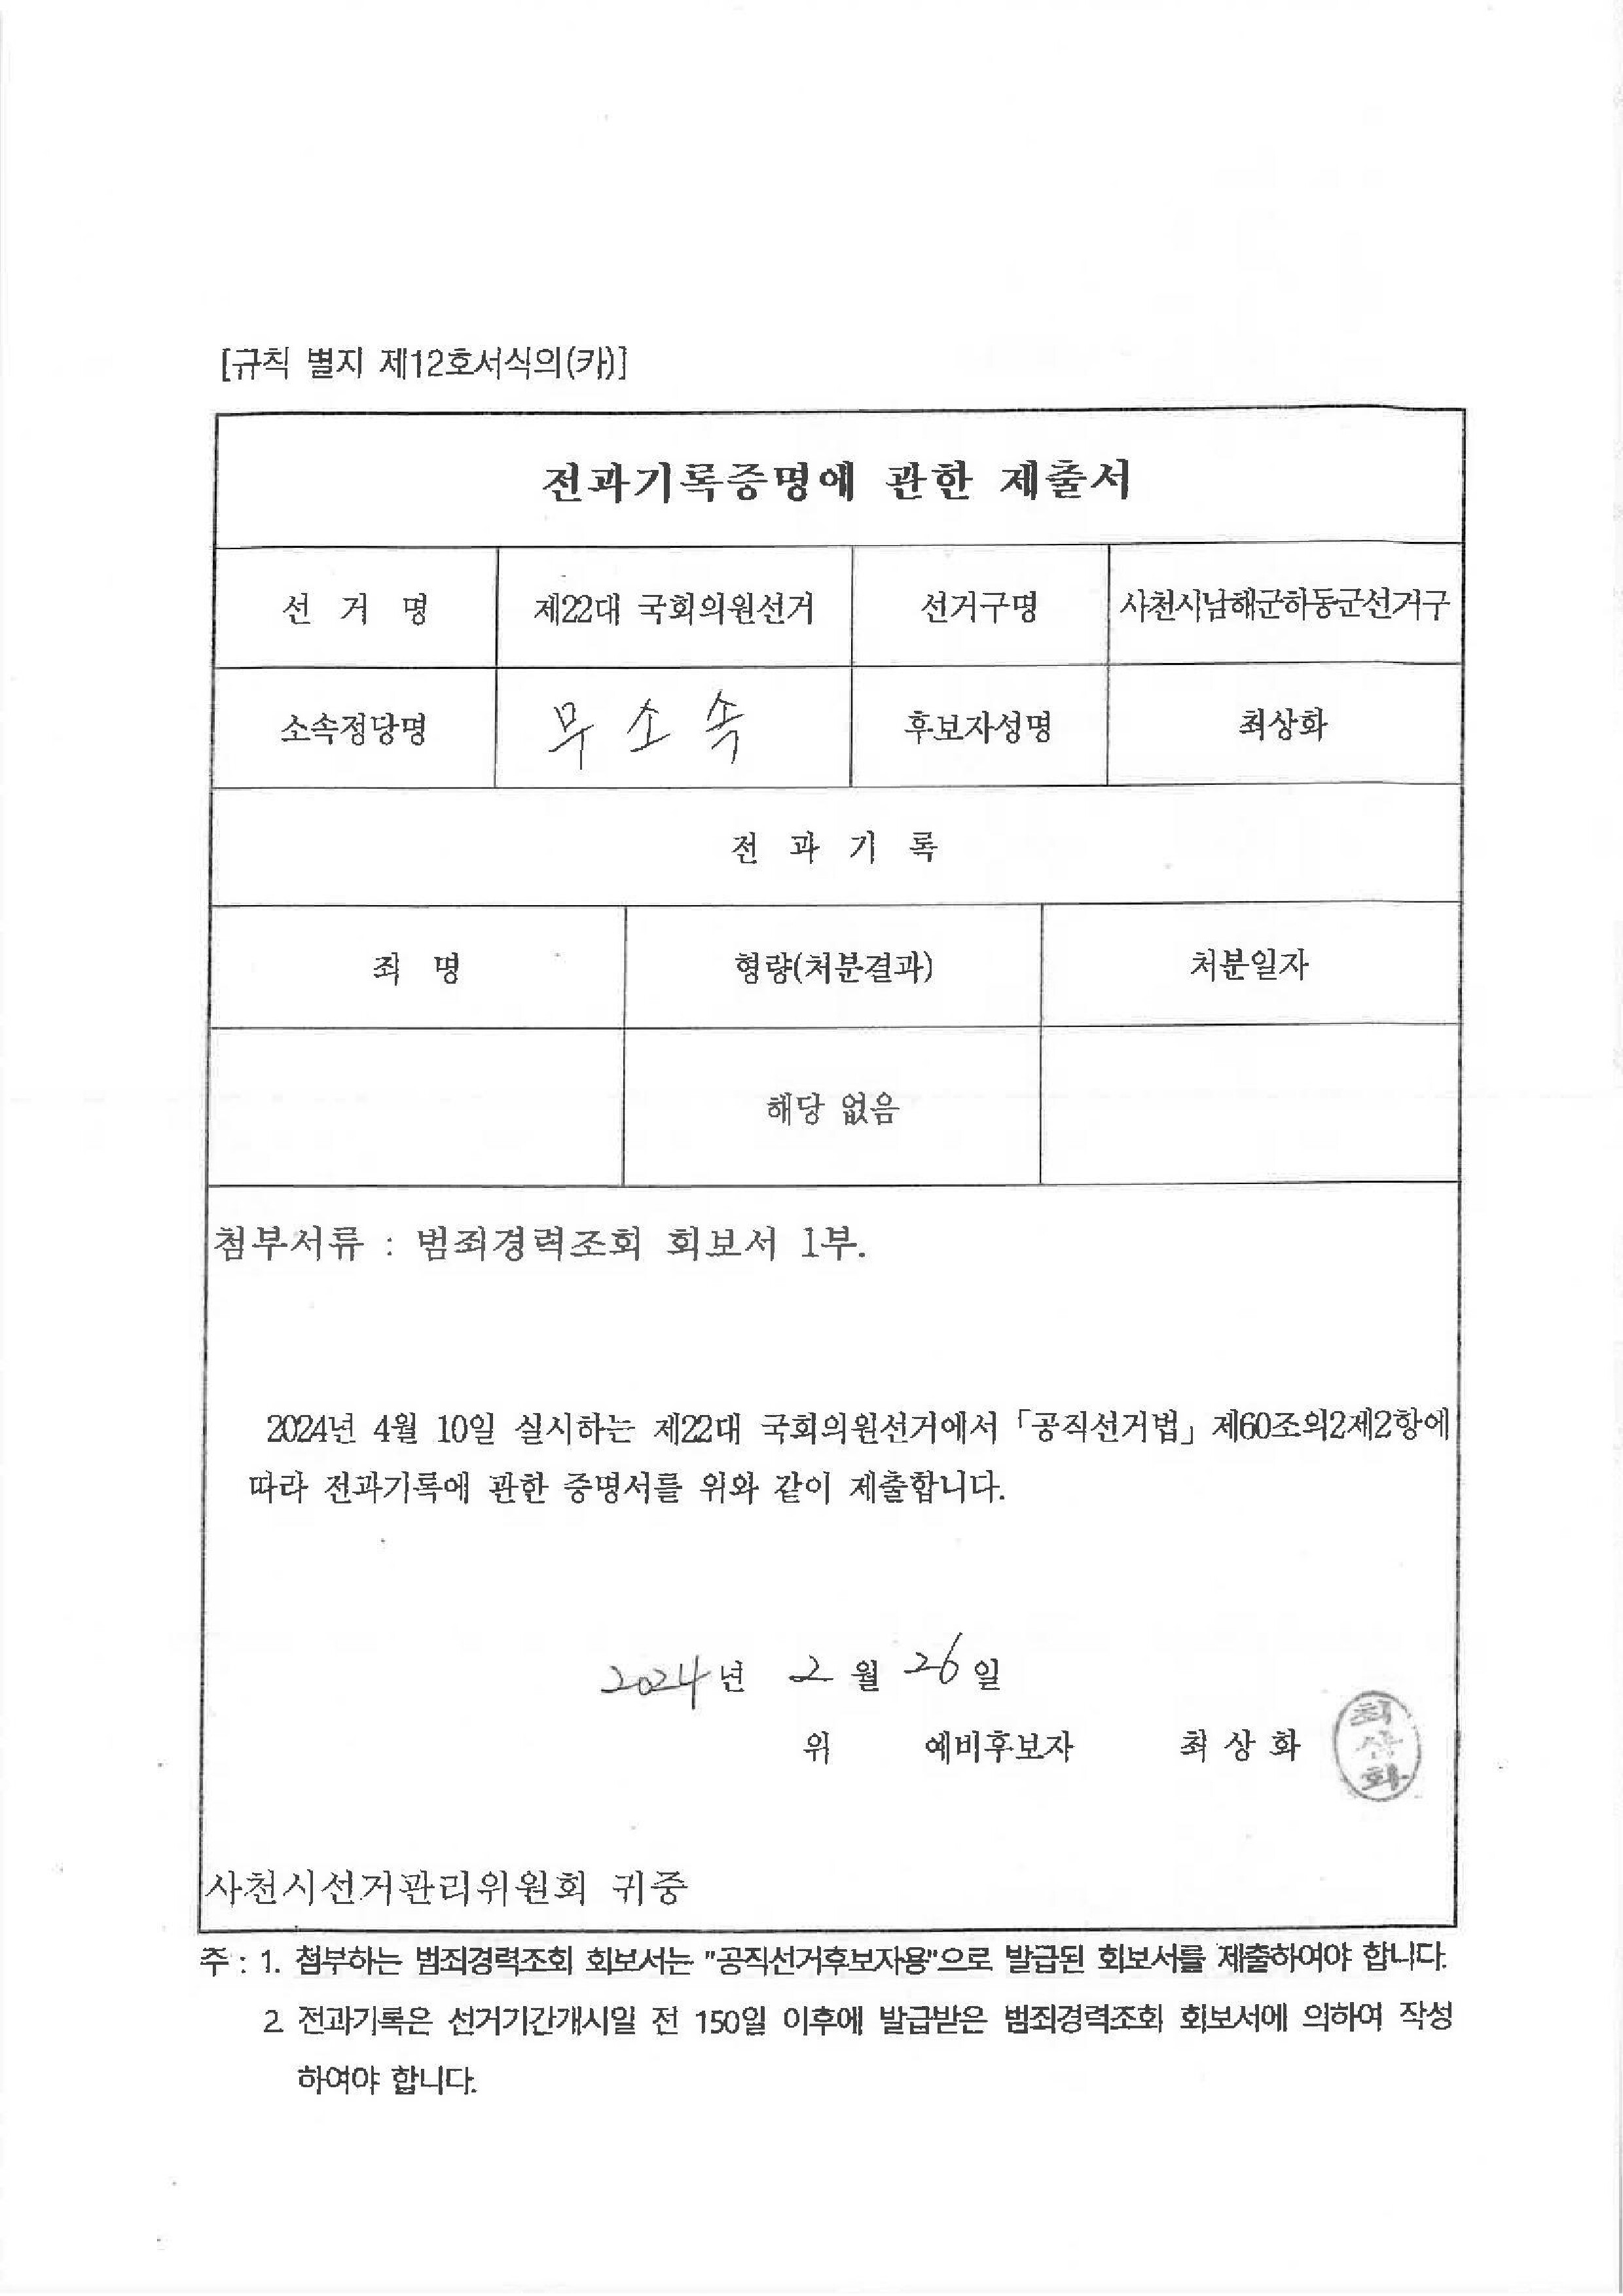 [규칙 별지 제12호서식의(카)]
전과기록증명에 관한 제출서
선 거 명 제22대 국회의원선거 선거구명 사천시남해군하동군선거구
소속정당명 무소속 후보자성명 최상화
전 과 기 록
죄 명 형량(처분결과) 처분일자
해당 없음
첨부서류 : 범죄경력조회 회보서 1부.
2024년 4월 10일 실시하는 제22대 국회의원선거에서 「공직선거법」 제60조의2제2항에
따라 전과기록에 관한 증명서를 위와 같이 제출합니다.
2024년 2월 26일
위 예비후보자 최 상 화
최상화
사천시선거관리위원회 귀중
주 : 1. 첨부하는 범죄경력조회 회보서는 "공직선거후보자용"으로 발급된 회보서를 제출하여야 합니다.
2. 전과기록은 선거기간개시일 전 150일 이후에 발급받은 범죄경력조회 회보서에 의하여 작성
하여야 합니다.